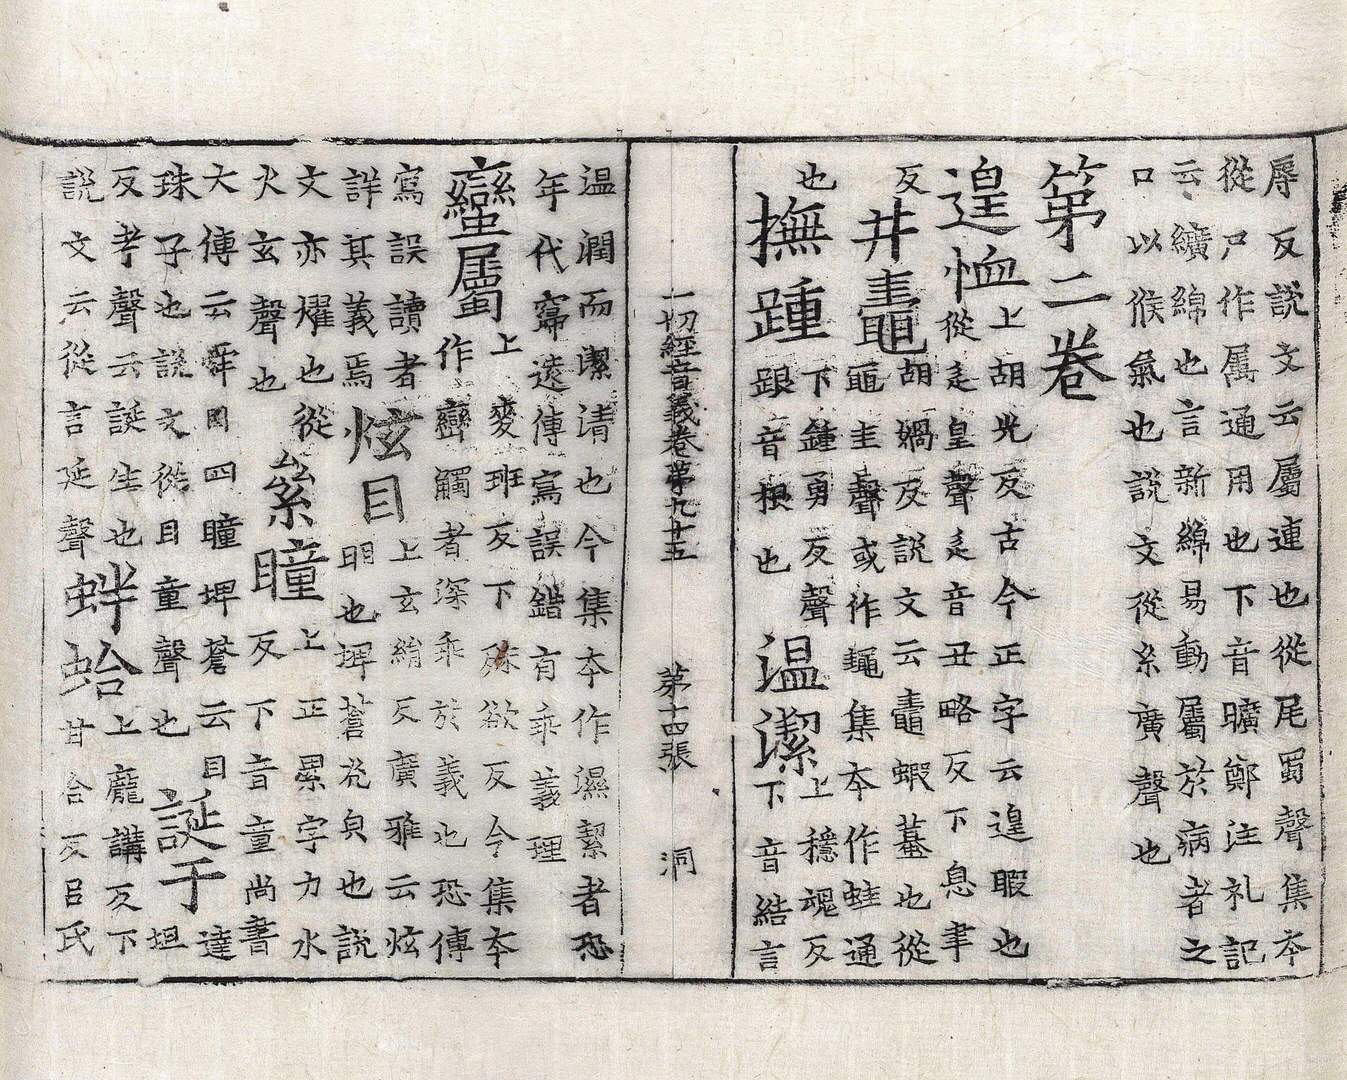 辱反說文云屬連也從尾蜀聲集本
從尸作属通用也下音曠鄭注礼記
云纊綿也言新綿易動屬於病者之
口以候氣也說文從糸廣聲也
第二卷
遑恤上胡光反古今正字云遑暇也
從辵皇聲辵音丑略反下息聿
反井鼃胡媧反說文云鼃蝦蟇也從
黽圭聲或作䵷集本作蛙通
也撫踵下鍾勇反聲
跟音根也温潔上穩魂反
下音結言
一切經音義卷第九十五 第十四張 洞
温潤而潔清也今集本作濕絜者恐
年代窵遠傳寫誤錯有乖義理
蠻屬上麥班反下殊欲反今集本
作巒觸者深乖於義也恐傳
寫誤讀者
詳其義焉炫目上玄絹反廣雅云炫
明也埤蒼光皃也說
文亦燿也從
火玄聲也絫瞳上正累字力水
反下音童尚書
大傳云舜目四瞳埤蒼云目
珠子也說文從目童聲也誕于達
坦
反考聲云誕生也
說文云從言延聲蚌蛤上龐講反下
甘合反吕氏